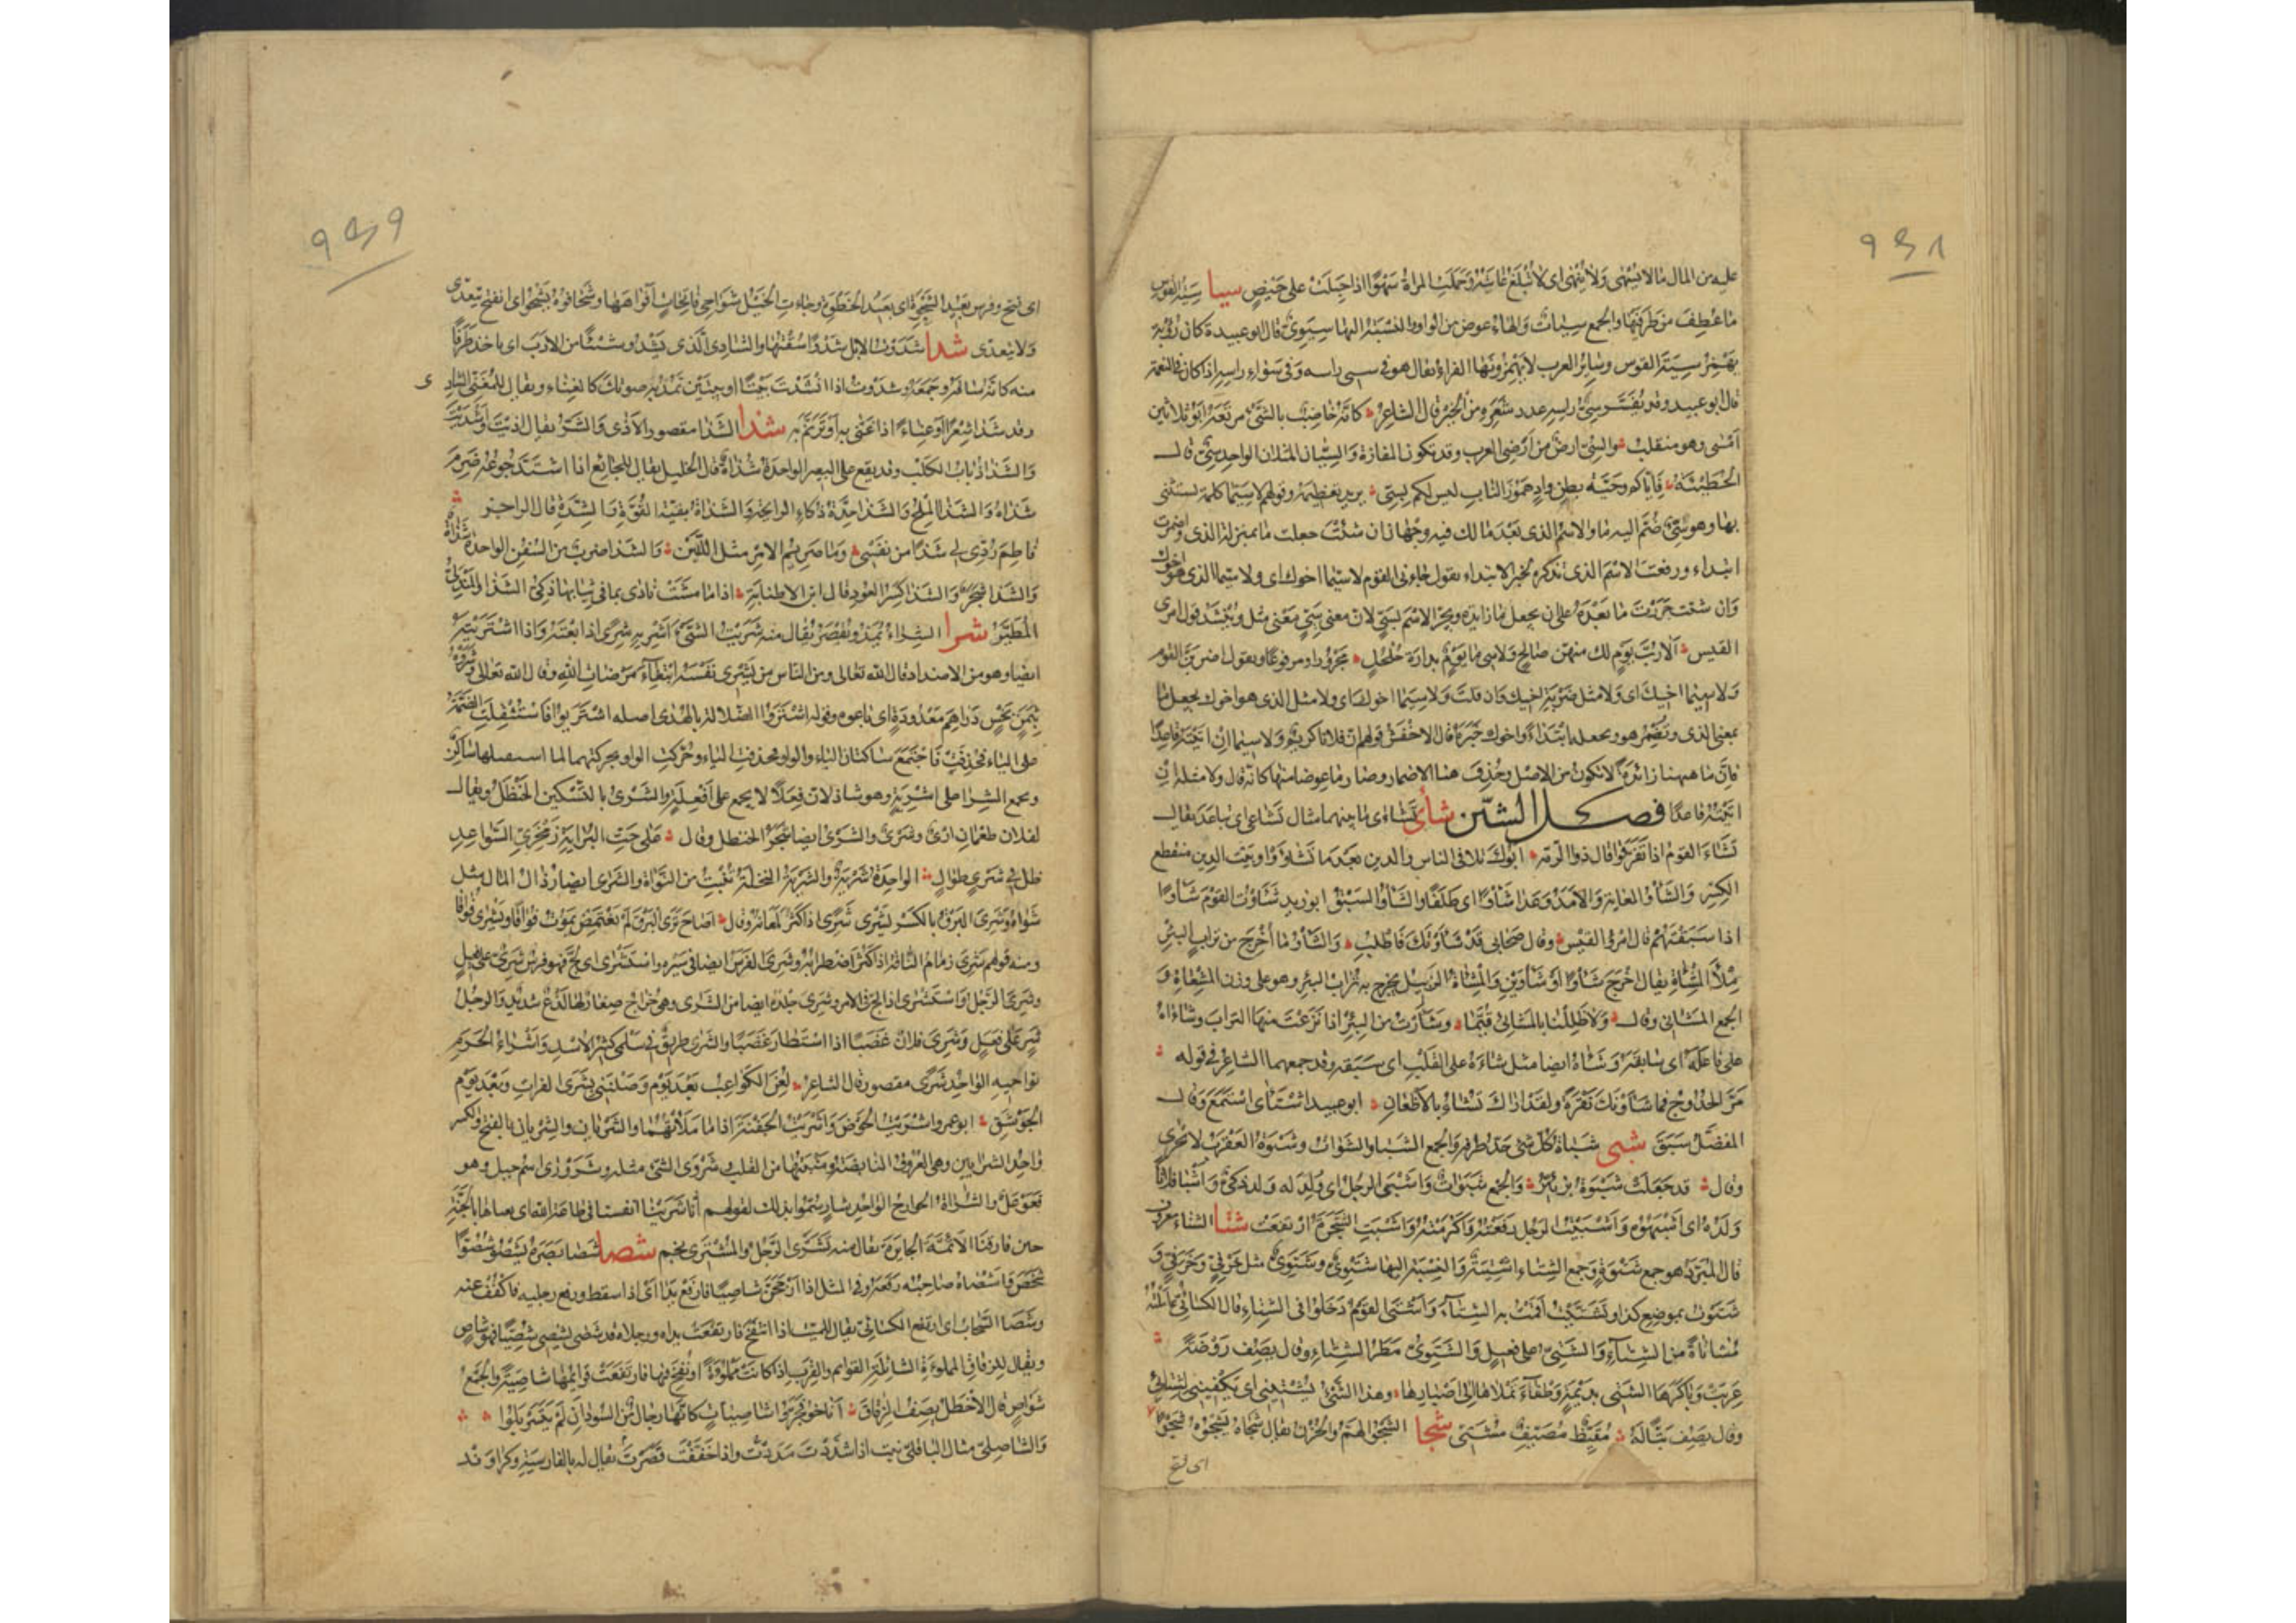 ٩٤٨
عليه من المال ما لا يُنْهَى ولا يُنْهَى اى لا تُبلَغ غايته وحملت المراة سَهْوًا اذا حبلت على حيض سيا سِيَةُ القوس
ما عُطِفَ من طرفيها والجمع سِيات والهاء عوض من الواو والنسبة اليها سِيَوِىّ قال ابو عبيدة كان رؤبة
يهمز سِيَة القوس وسائر العرب لا يهمزونها الفراء يقال هو فى سى راسه وفى سواء راسه اذا كان فى النعمة
قال ابو عبيد وقد يفسّر سىّ راسه عدد شعره من الخير قال الشاعر كانه خاضب بالسّىّ مرتعه ابو ثلاثين
امسى وهو منقلب والسّىّ ارض من اراضى العرب وقد تكون المفازة والسّيّان المثلان الواحد سىّ قال
الحطيئة فاياكم وحيّة بطن واد هموز الناب ليس لكم بسىّ يريد تعظيمه وقولهم لاسيّما كلمة يستثنى
بها وهو سىّ ضُمّ اليه ما والاسم الذى بعد ما لك فيه وجهان ان شئت جعلت ما بمنزلة الذى واضمرت
ابتداء ورفعت الاسم الذى تذكره لخبر الابتداء تقول جاءنى القوم لاسيّما اخوك اى ولا سيّما الذى هو اخوك
وان شئت جررت ما بعده على ان يجعل ما زايدة وتجرّ الاسم بسىّ لان معنى سىّ معنى مثل وينشد قول امرئ
القيس الا ربّ يوم لك منهن صالح ولاسيما يوم بدارة جلجل مجرورا ومرفوعا وتقول اضربنّ القوم
ولا سيّما اخيك اى ولا مثل ضربة اخيك وان قلت ولا سيّما اخوك اى ولا مثل الذى هو اخوك تجعل ما
بمعنى الذى وتضمر هو وتجعله ابتداء واخوك خبره قال الاخفش قولهم ان فلانا كريم ولا سيما ان اتيته قاعدا
فانّ ما ههنا زائدة لا تكون من الاصل وحذف هنا الاضمار وصار ما عوضا منها كانه قال ولا مثله ان
اتيته قاعدا فصل الشين شأى تشاءى ما بينهما مثال تشاعى اى تباعد يقال
تشاءى القوم اذا تفرّقوا قال ذو الرمة ابوك تلافى الناس والدين بعد ما تشاءوا وبيت الدين منقطع
الكسر والشأو الغاية والامد وعدا شأوا اى طلقا والشأو السبق ابو زيد شأوت القوم شأوا
اذا سبقتهم قال امرؤ القيس وقال صحابى قد شأونك فاطلب والشأو ما اخرج من تراب البئر
مثل المشآة يقال اخرج شأوا او شأوين والمشآة الزبيل يخرج به تراب البئر وهو على وزن المشعاة و
الجمع المشائى وقال ولا ظللنا بالمشائى قيّما وشأوت من البئر اذا نزعت منها التراب وشاءاه
على فاعله اى سابقه وشاءه ايضا مثل شاءه على القلب اى سبقه وقد جمعهما الشاعر فى قوله
مرّ الحدوج فما شأونك نقرة ولقد اراك تشاء بالاظعان ابو عبيد اشتأى استمع وقال
المفضل سبق شبى شباة كل شئ حدّ طرفه والجمع الشبا والشبوات وشبوة العقرب لا تجرى
وقال قد جعلت شبوة تزبئر والجمع شبوات واشبى الرجل اى ولد له ولد ذكىّ واشبا فلانا
ولده اى اشبهوه واشبيت الرجل رفعته واكرمته واشبت الشجرة ارتفعت شتا الشتاء معروف
قال المبرد هو جمع شتوة وجمع الشتاء اشتية والنسبة اليها شتوىّ وشتوىّ مثل خرفىّ وخرفىّ و
شتوت بموضع كذا وتشتّيت اقمت به الشتاء واشتى القوم دخلوا فى الشتاء قال الكسائى عاملته
مشاتاة من الشتاء والشتىّ على فعيل والشتوىّ مطر الشتاء وقال يصف روضة
عزبت وباكرها الشتىّ بديمة وطفاء تملاها الى اصبارها وهذا الشئ يشتّينى اى يكفينى لشتائى
وقال يصف بتّا له مقيّظ مصيّف مشتّى شجا الشجو الهمّ والحزن يقال شجاه يشجوه شجوا
اى فتح
٩٤٩
اى فتح وفرس بعيد الشحوة اى بعيد الخطوة وجاءت الخيل شواحى فاتحات افواهها وشحا فوه يشحو اى انفتح يتعدّى
ولا يتعدّى شدا شدوت الابل شدوا سقتها والشادى الذى يشدو شيئا من الادب اى ياخذ طرفا
منه كانه ساقه وجمعه وشدوت اذا انشدت بيتا او بيتين تمدّ به صوتك كالغناء ويقال للمغنّى الشادى
وقد شدا شعرا او غناء اذا غنّى به او ترنّم به شذا الشذا مقصور الاذى والشرّ يقال اذيت واشذيت
والشذا ذباب الكلب وقد يقع على البعير الواحدة شذاة قال الخليل يقال للجائع اذا اشتدّ جوعه ضرم
شذاه والشذا الملح والشذا حدّة ذكاء الرايحة والشذاة بقية القوة والشدة قال الراجز
فاطم ردّى لى شذا من نفسى وما صريم الامر مثل اللبس والشذا ضرب من السفن الواحدة شذاة
والشذا شجر والشذا كسر العود قال ابن الاطنابة اذا ما مشت نادى بما فى ثيابها ذكىّ الشذا والمندلىّ
المطيّر شرا الشراء يمدّ ويقصر يقال منه شريت الشئ اشريه شرى اذا بعته واذا اشتريته
ايضا وهو من الاضداد قال الله تعالى ومن الناس من يشرى نفسه ابتغاء مرضات الله وقال الله تعالى وشروه
بثمن بخس دراهم معدودة اى باعوه وقوله اشتروا الضلالة بالهدى اصله اشتريوا فاستثقلت الضمة
على الياء فحذفت فاجتمع ساكنان الياء والواو فحذفت الياء وحركت الواو بحركتها لما استقبلها ساكن
ويجمع الشرا على اشرية وهو شاذ لان فعلا لا يجمع على افعلة والشرى بالتسكين الحنظل ويقال
لفلان طعمان ارى وشرى والشرى ايضا شجر الحنظل وقال على حتّ البراية زمخرىّ السواعد
ظلّ فى شرى طوال الواحدة شرية والشرية النخلة تنبت من النواة والشرى ايضا رذال المال مثل
شواة وشرى البرق بالكسر يشرى شرى اذا كثر لمعانه وقال اصاح ترى البرق لم يغتمض يموت فواقا ويشرى فواقا
ومنه قولهم شرى زمام الناقة اذا كثر اضطرابه وشرى الفرس ايضا فى سيره واستشرى اى لجّ فهو فرس شرىّ على فعيل
وشرى الرجل واستشرى اذا لجّ فى الامر وشرى جلده ايضا من الشرى وهو خراج صغار لها لذع شديد والرجل
شرٍ على فعل وشرى فلان غضبا اذا استطار غضبا والشرى طريق فى سلمى كثير الاسد واشراء الحرم
نواحيه الواحد شرى مقصور قال الشاعر لعن الكواعب بعد يوم وصلتنى بشرى الفرات وبعد يوم
الجوسق ابو عمرو اشريت الحوض واشريت الجفنة اذا ما ملأتهما والشريان والشريان بالفتح والكسر
واحد الشرايين وهى العروق النابضة ومنبتها من القلب وشروى الشئ مثله وشرورى اسم جبل وهو
فعوعل والشراة الخوارج الواحد شار سمّوا بذلك لقولهم انا شرينا انفسنا فى طاعة الله اى بعناها بالجنة
حين فارقنا الائمة الجايرة يقال منه تشرّى الرجل والمشترى نجم شصا شصا بصره يشصو شصوّا
شخص واشصاه صاحبه رفعه وفى المثل اذا ارجحنّ شاصيا فارفع يدا اى اذا سقط ورفع رجليه فاكفف عنه
وشصا السحاب اى ارتفع الكسائى يقال للميت اذا انتفخ فارتفعت يداه ورجلاه قد شصى يشصى شصيا فهو شاص
ويقال للزقاق المملوءة الشائلة القوائم والقرب اذا كانت مملوءة او نفخ فيها فارتفعت قوائمها شاصية والجمع
شواص قال الاخطل يصف الزقاق اناخوا فجرّوا شاصيات كانها رجال من السودان لم يتسربلوا
والشاصلىّ مثال الباقلىّ نبت اذا شدّدت مددت واذا خففت قصرت يقال له بالفارسية وكراوند